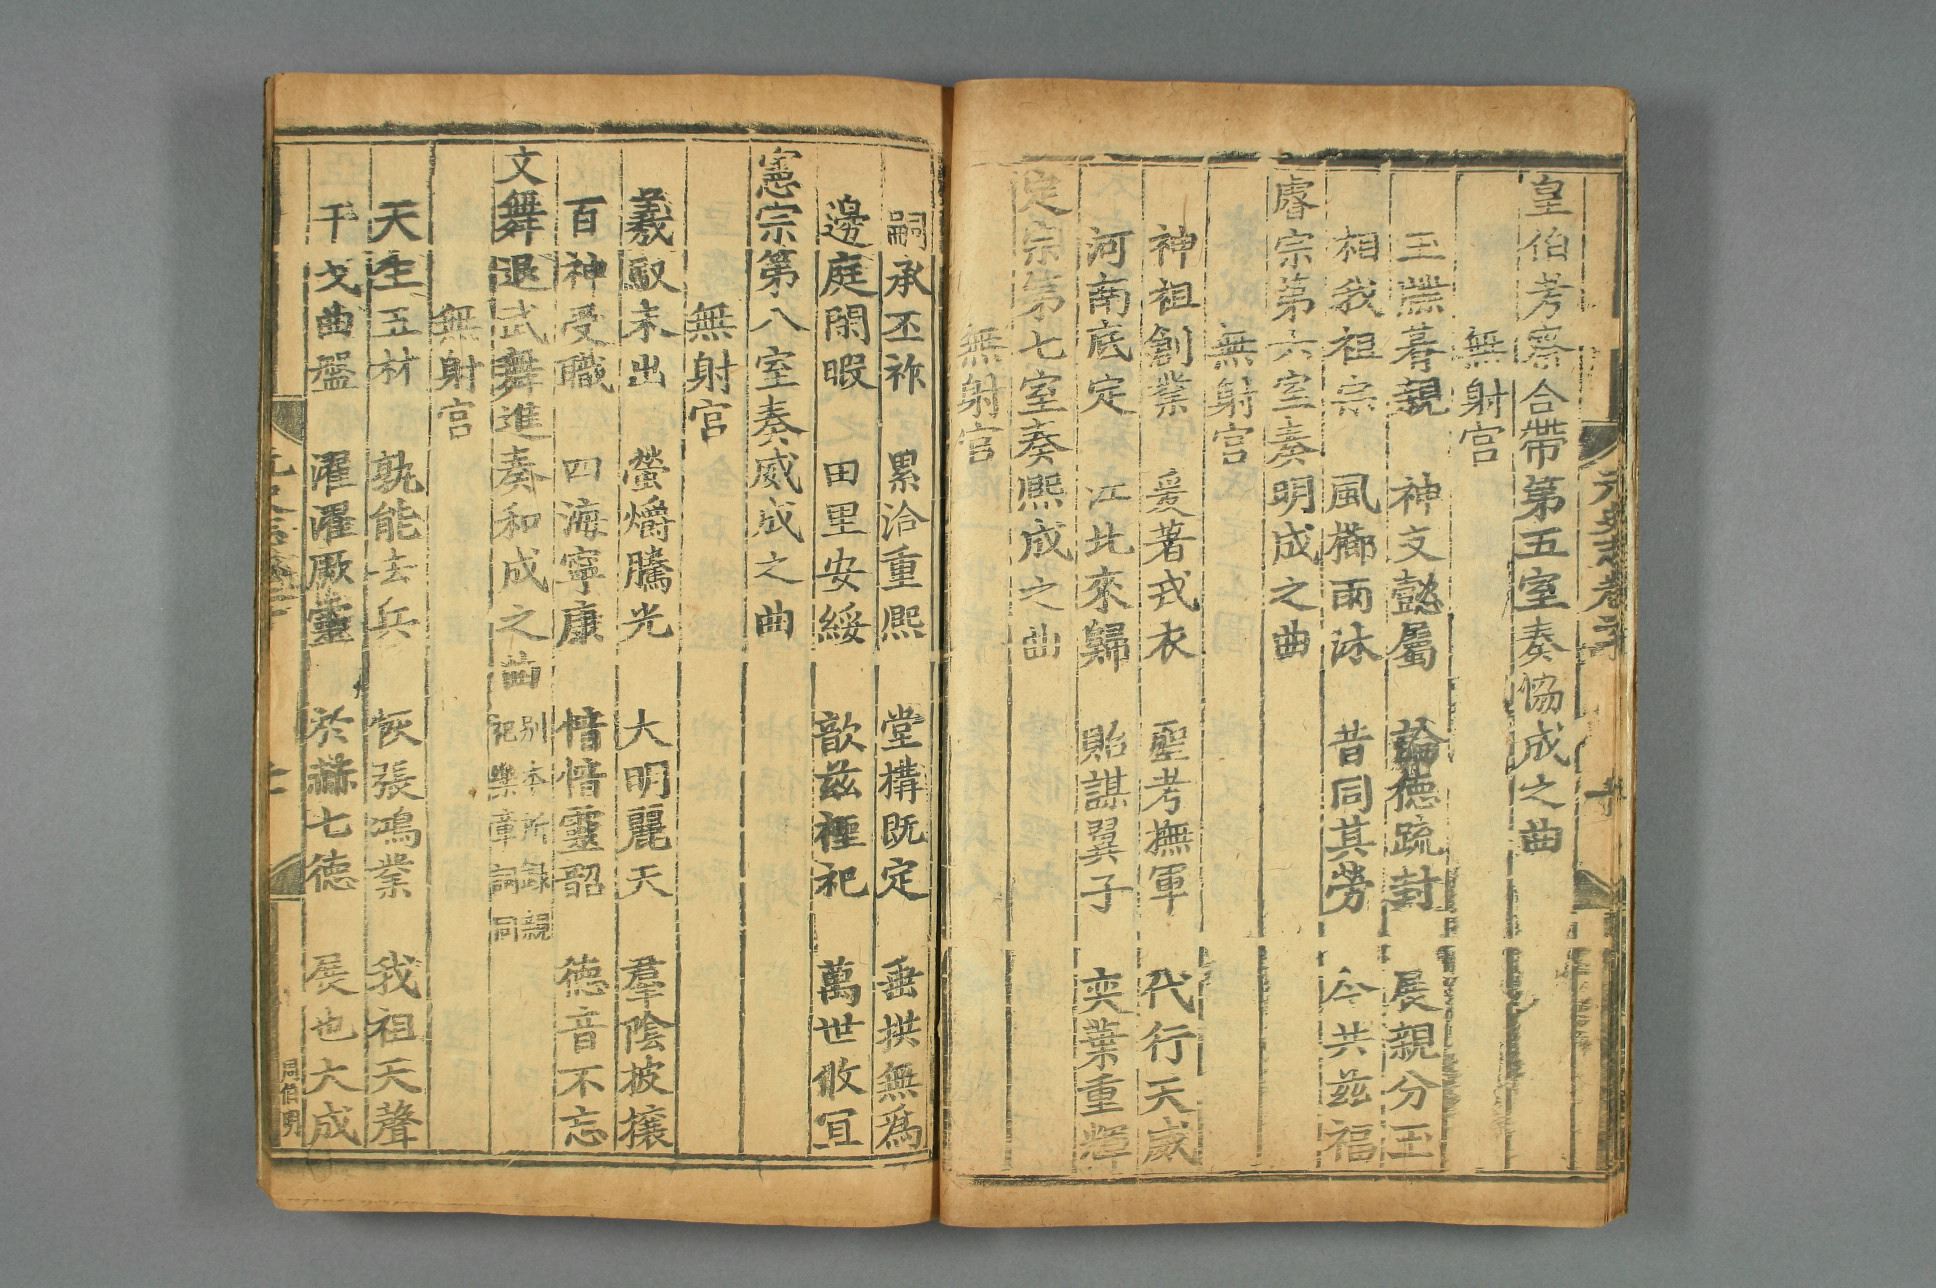 元史志卷二十
皇伯考察合帶第五室奏協成之曲
無射宮
玉𤋎暮親 神支懿屬 論德疏封 展親分玉
相我祖宗 風櫛雨沐 昔同其勞 今共茲福
睿宗第六室奏明成之曲
無射宮
神祖創業 爰著戎衣 聖考撫軍 代行天威
河南底定 江北來歸 貽謀翼子 奕葉重輝
定宗第七室奏熙成之曲
無射宮
嗣承丕祚 累洽重熙 堂構既定 垂拱無爲
邊庭閑暇 田里安綏 歆茲禋祀 萬世攸冝
憲宗第八室奏威成之曲
無射宮
羲馭未出 螢爝騰光 大明麗天 羣陰披攘
百神受職 四海寧康 愔愔靈韶 德音不忘
文舞退武舞進奏和成之曲 別本所錄親祀樂章詞同
無射宮
天生五材 孰能去兵 恢張鴻業 我祖天聲
干戈曲盤 濯濯厥靈 於赫七德 展也大成
周伯明